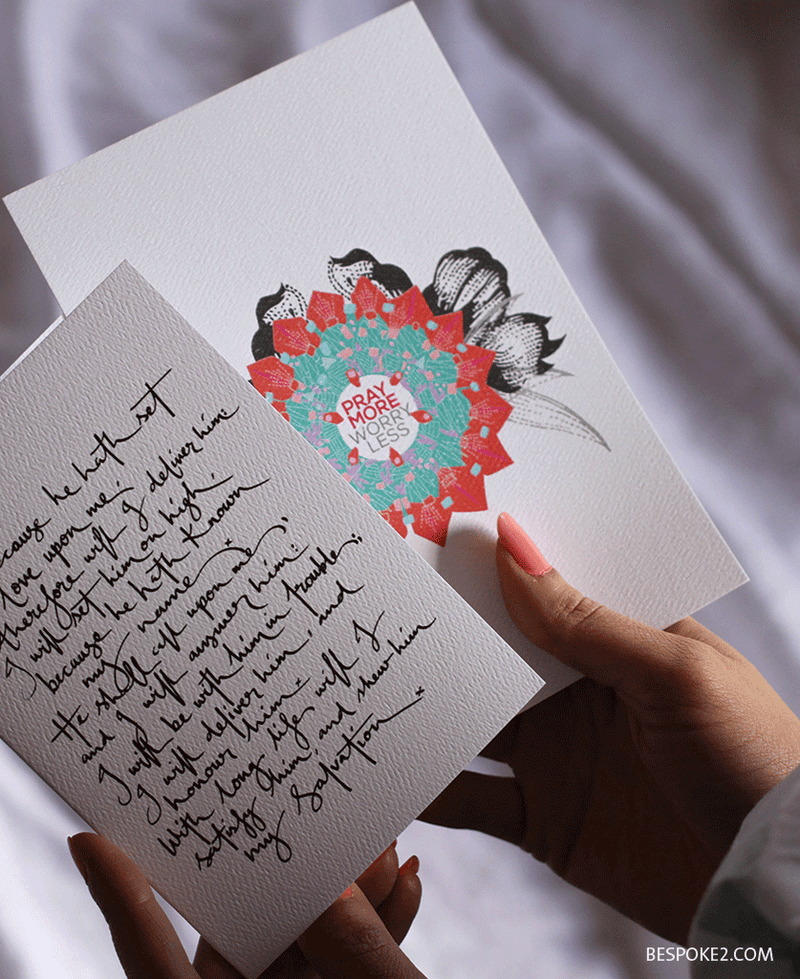 PRAY
MORE
WORRY
LESS
ecause he hath set
love upon me;
therefore will I deliver him
I will set him on high,
because he hath Known
my name.
He shall call upon me,
and I will answer him:
I will be with him in trouble;
I will deliver him, and
honour him.
With long life will I
satisfy him, and shew him
my Salvation.
BESPOKE2.COM